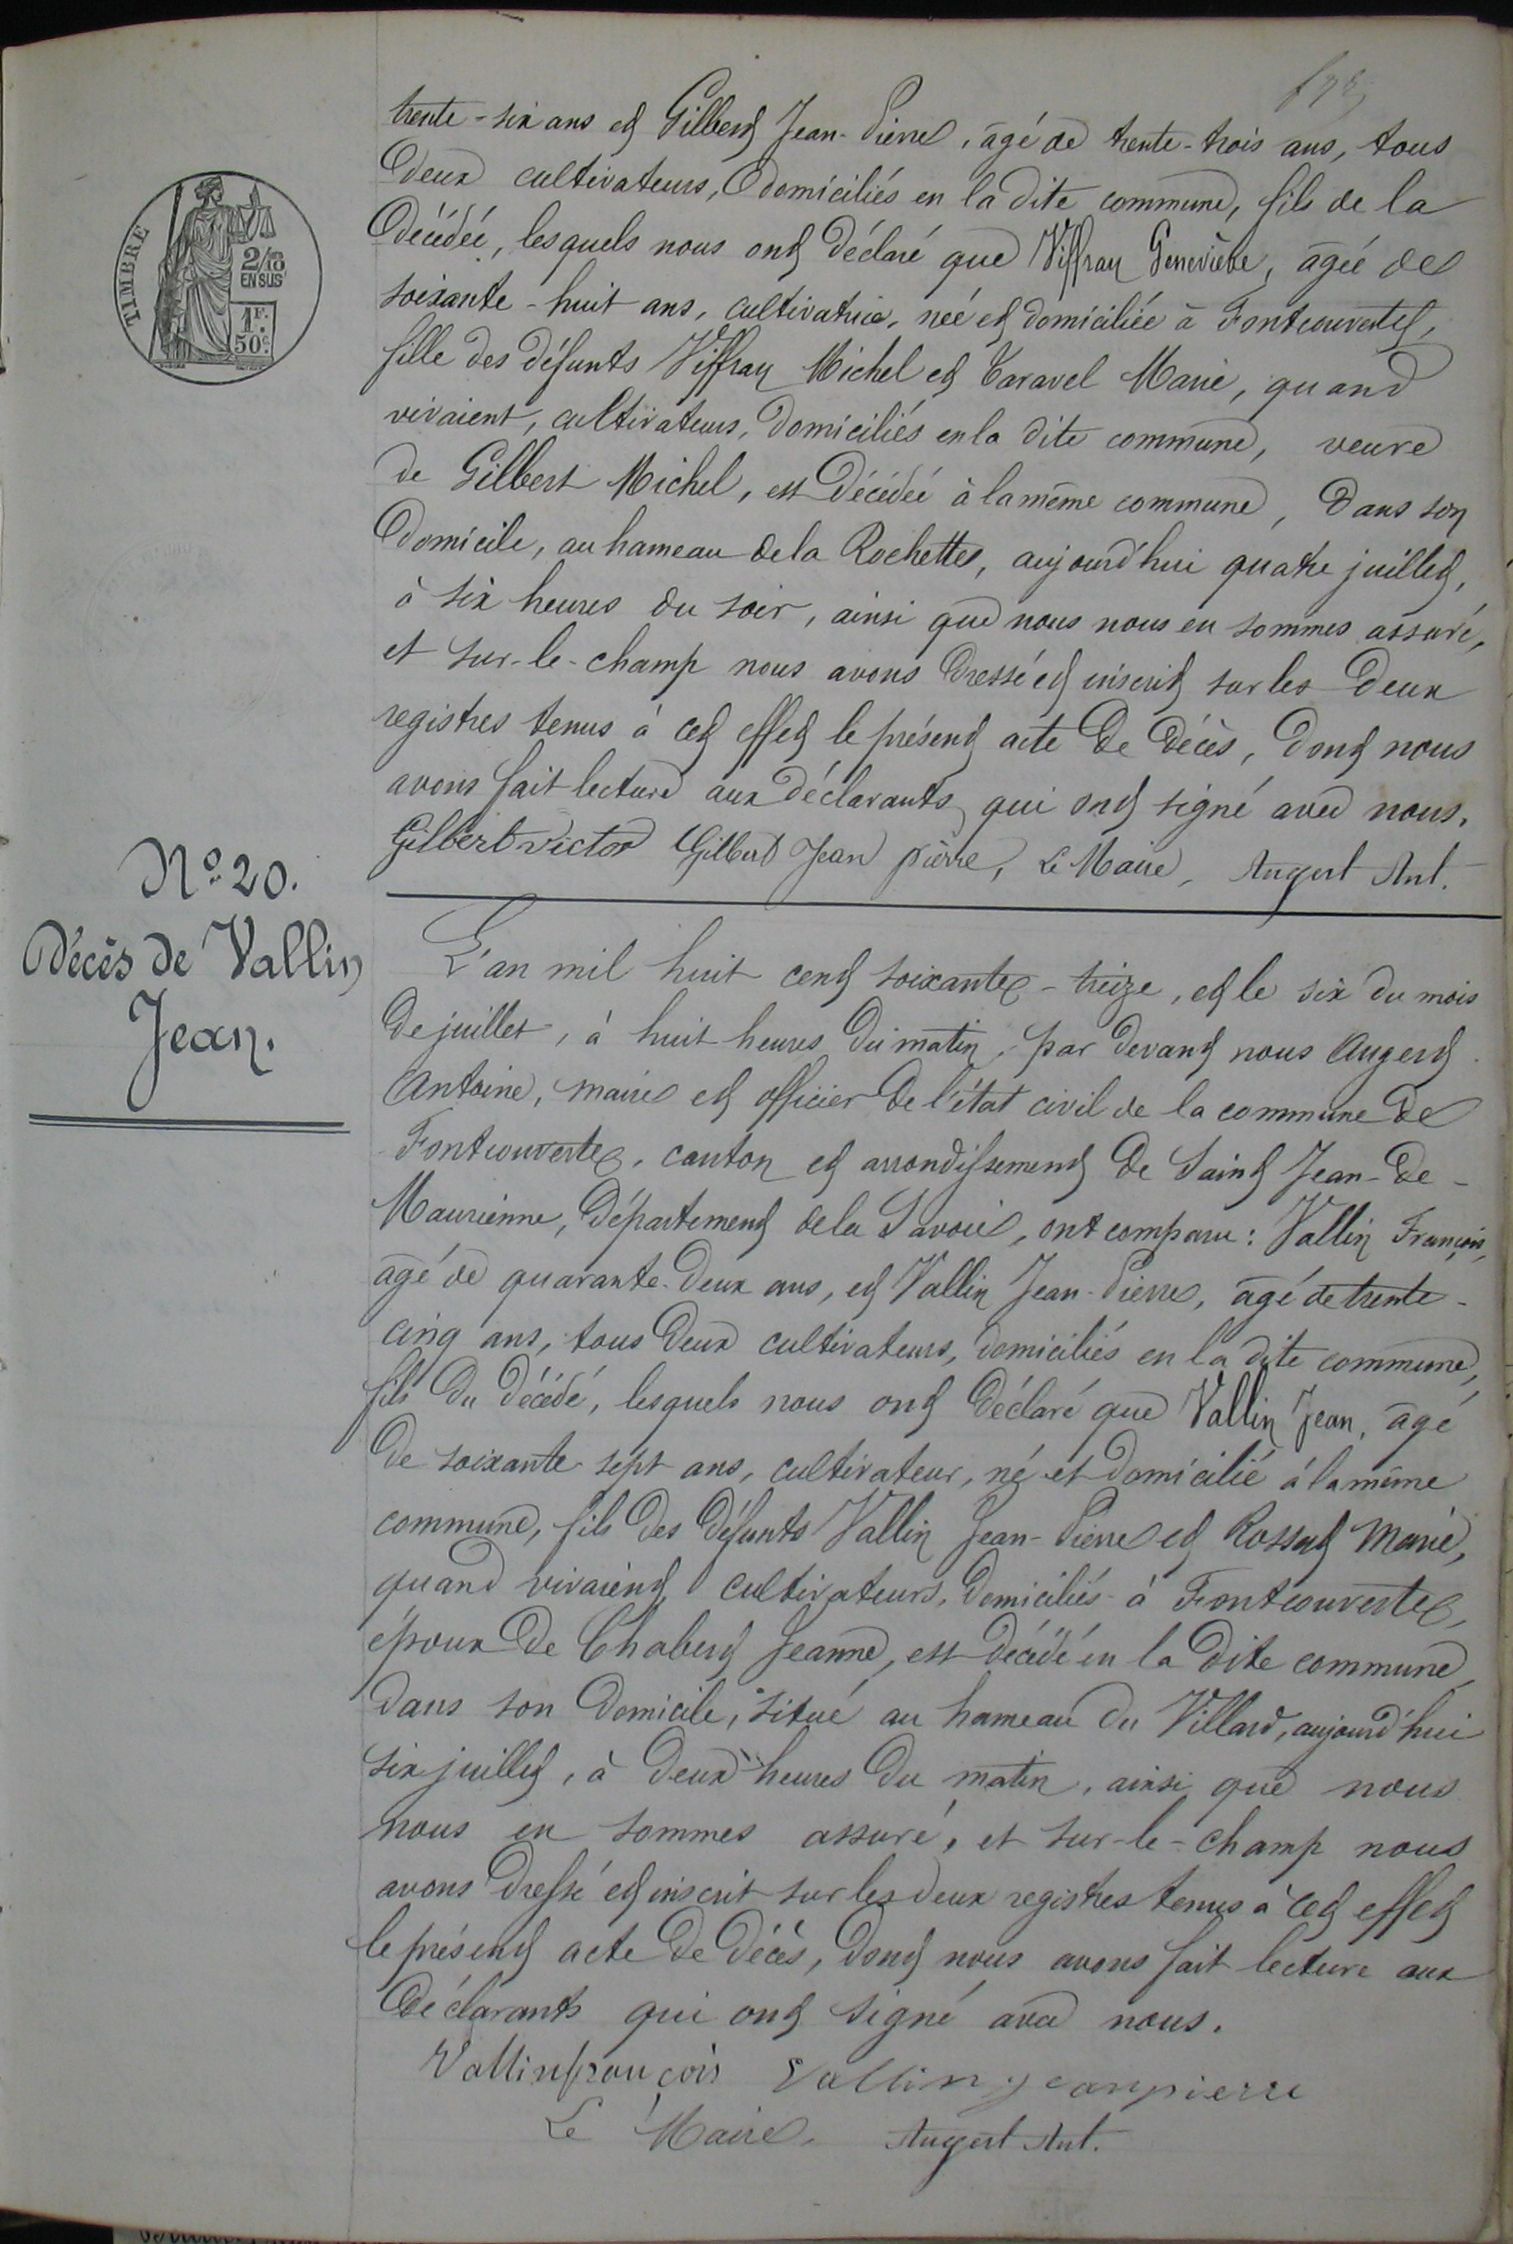 trente-six ans et Gilbert Jean-Pierre, âgé de trente-trois ans, tous
deux cultivateurs, domiciliés en la dite commune, fils de la
décédée, lesquels nous ont déclaré que Viffray Geneviève, âgée de
soixante-huit ans, cultivatrice, née et domiciliée à Fontcouverte,
fille des défunts Viffray Michel et Taravel Marie, quand
vivaient, cultivateurs, domiciliés en la dite commune, veuve
de Gilbert Michel, est décédée à la même commune, dans son
domicile, au hameau de la Rochette, aujourd'hui quatre juillet,
à six heures du soir, ainsi que nous nous en sommes assuré,
et sur-le-champ nous avons dressé et inscrit sur les deux
registres tenus à cet effet le présent acte de décès, dont nous
avons fait lecture aux déclarants qui ont signé avec nous.
Gilbert victor Gilbert Jean pierre, Le Maire, Augert Ant.
TIMBRE
2/10 EN SUS
1F. 50c.
No 20.
Décès de Vallin
Jean.
L'an mil huit cent soixante-treize, et le six du mois
de juillet, à huit heures du matin, par devant nous Augert
Antoine, maire et officier de l'état civil de la commune de
Fontcouverte, canton et arrondissement de Saint Jean-de-
Maurienne, département de la Savoie, ont comparu : Vallin François,
âgé de quarante-deux ans, et Vallin Jean-Pierre, âgé de trente-
cinq ans, tous deux cultivateurs, domiciliés en la dite commune,
fils du décédé, lesquels nous ont déclaré que Vallin Jean, âgé
de soixante-sept ans, cultivateur, né et domicilié à la même
commune, fils des défunts Vallin Jean-Pierre et Rossat Marie,
quand vivaient cultivateurs, domiciliés à Fontcouverte,
époux de Chabert Jeanne, est décédé en la dite commune,
dans son domicile, situé au hameau du Villard, aujourd'hui
six juillet, à deux heures du matin, ainsi que nous
nous en sommes assuré, et sur-le-champ nous
avons dressé et inscrit sur les deux registres tenus à cet effet
le présent acte de décès, dont nous avons fait lecture aux
déclarants qui ont signé avec nous.
Vallin françois Vallin jean pierre
Le Maire, Augert Ant.